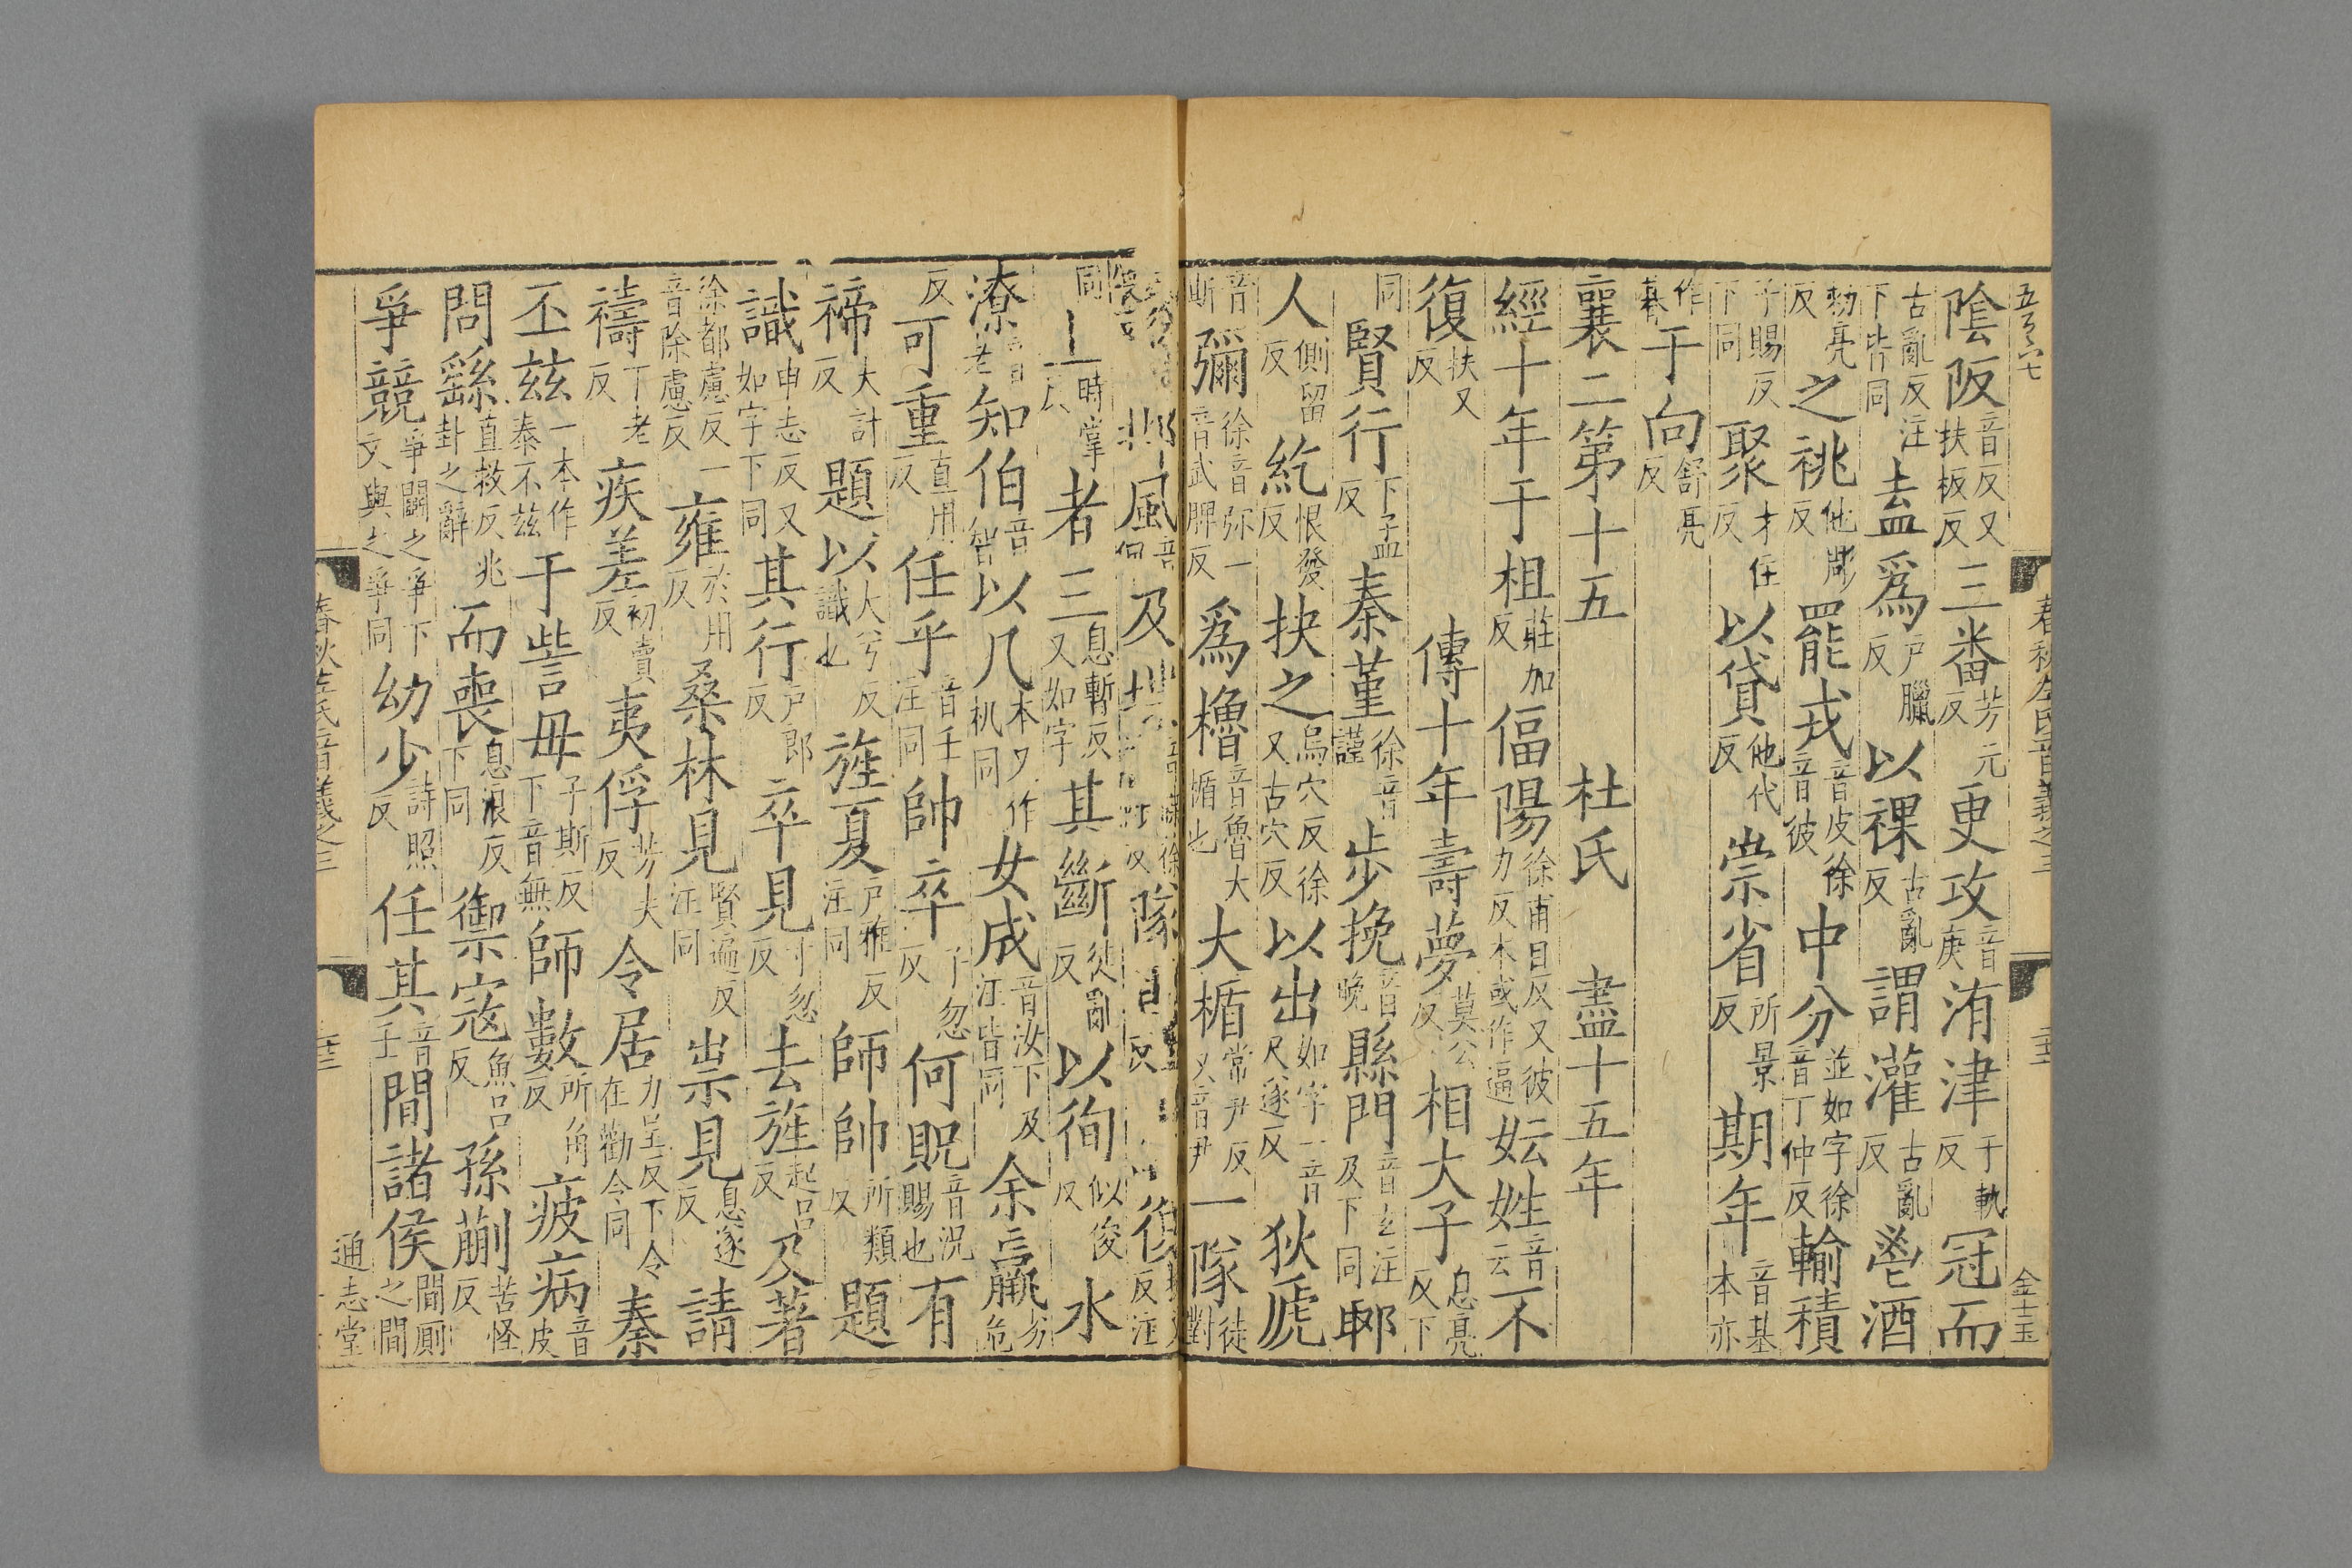 陰阪音反又扶板反三番芳元反更攻音庚洧津于軌反冠而
古亂反注下皆同盍爲戶臘反以祼古亂反謂灌古亂反鬯酒
勑亮反之祧他彫反罷戎音皮徐音彼中分並如字徐音丁仲反輸積
子賜反下同聚才住反以貸他代反崇省所景反期年音基本亦
作朞于向舒亮反
襄二第十五 杜氏 盡十五年
經十年于柤莊加反偪陽徐甫目反又彼力反本或作逼妘姓音云不
復扶又反 傳十年壽夢莫公反相大子息亮反下
同賢行下孟反秦堇徐音謹步挽音晚縣門音玄注及下同郰
人側留反紇恨發反抉之烏穴反徐又古穴反以出如字一音尺遂反狄虒
音斯彌徐音弥一音武脾反爲櫓音魯大楯也大楯常尹反又音尹一隊徒對
風及隊反復反注
同上時掌反者三息暫反又如字其斷徒亂反以徇似俊反水
潦音老知伯音智以几本又作机同女成音汝下及注皆同余羸劣危
反可重直用反任乎音壬注同帥卒子忽反何貺音況賜也有
禘大計反題以大兮反識也旌夏戶雅反注同師帥所類反題
識申志反又如字下同其行戶郎反卒見寸忽反去旌起呂反及著
徐都慮反一音除慮反雍於用反桑林見賢遍反注同祟見息遂反請
禱丁老反疾差初賣反夷俘芳夫反令居力呈反下令在勸令同秦
丕茲一本作秦不茲于訾毋子斯反下音無師數所角反疲病音皮
問繇直救反兆卦之辭而喪息浪反下同禦寇魚呂反孫蒯苦怪反
爭競爭鬬之爭下文與之爭同幼少詩照反任其音壬間諸侯間厠之間
通志堂